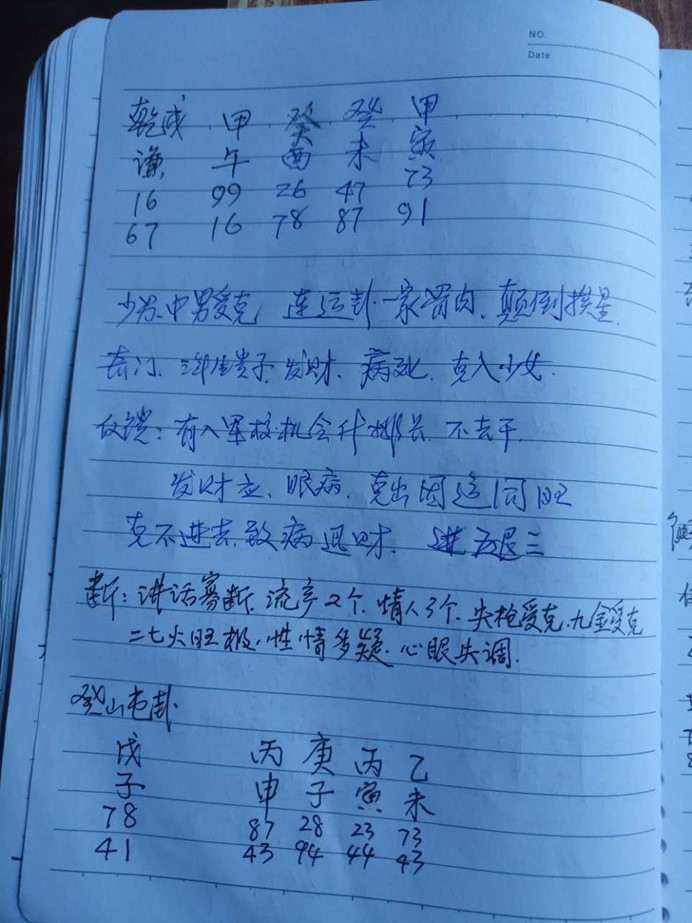 NO.
Date
乾 戌 甲 癸 癸 甲
谦 午 酉 未 寅
16 99 26 47 73
67 16 78 87 91
少男.中男受克 连运卦一家骨肉.颠倒挨星.
奇门.三年生贵子.发财.病死.克入少女.
反馈:有入军校机会升排长 不去干.
发财应.眼病.克出因运同旺
克不进去.致病退财. 进五退三
断:讲话寡断.流产2个.情人3个.失枪受克.九金受克
二七火旺极.性情多疑.心眼失调.
登山起卦.
戊 丙 庚 丙 乙
子 申 子 寅 未
78 87 28 23 73
41 43 94 44 43